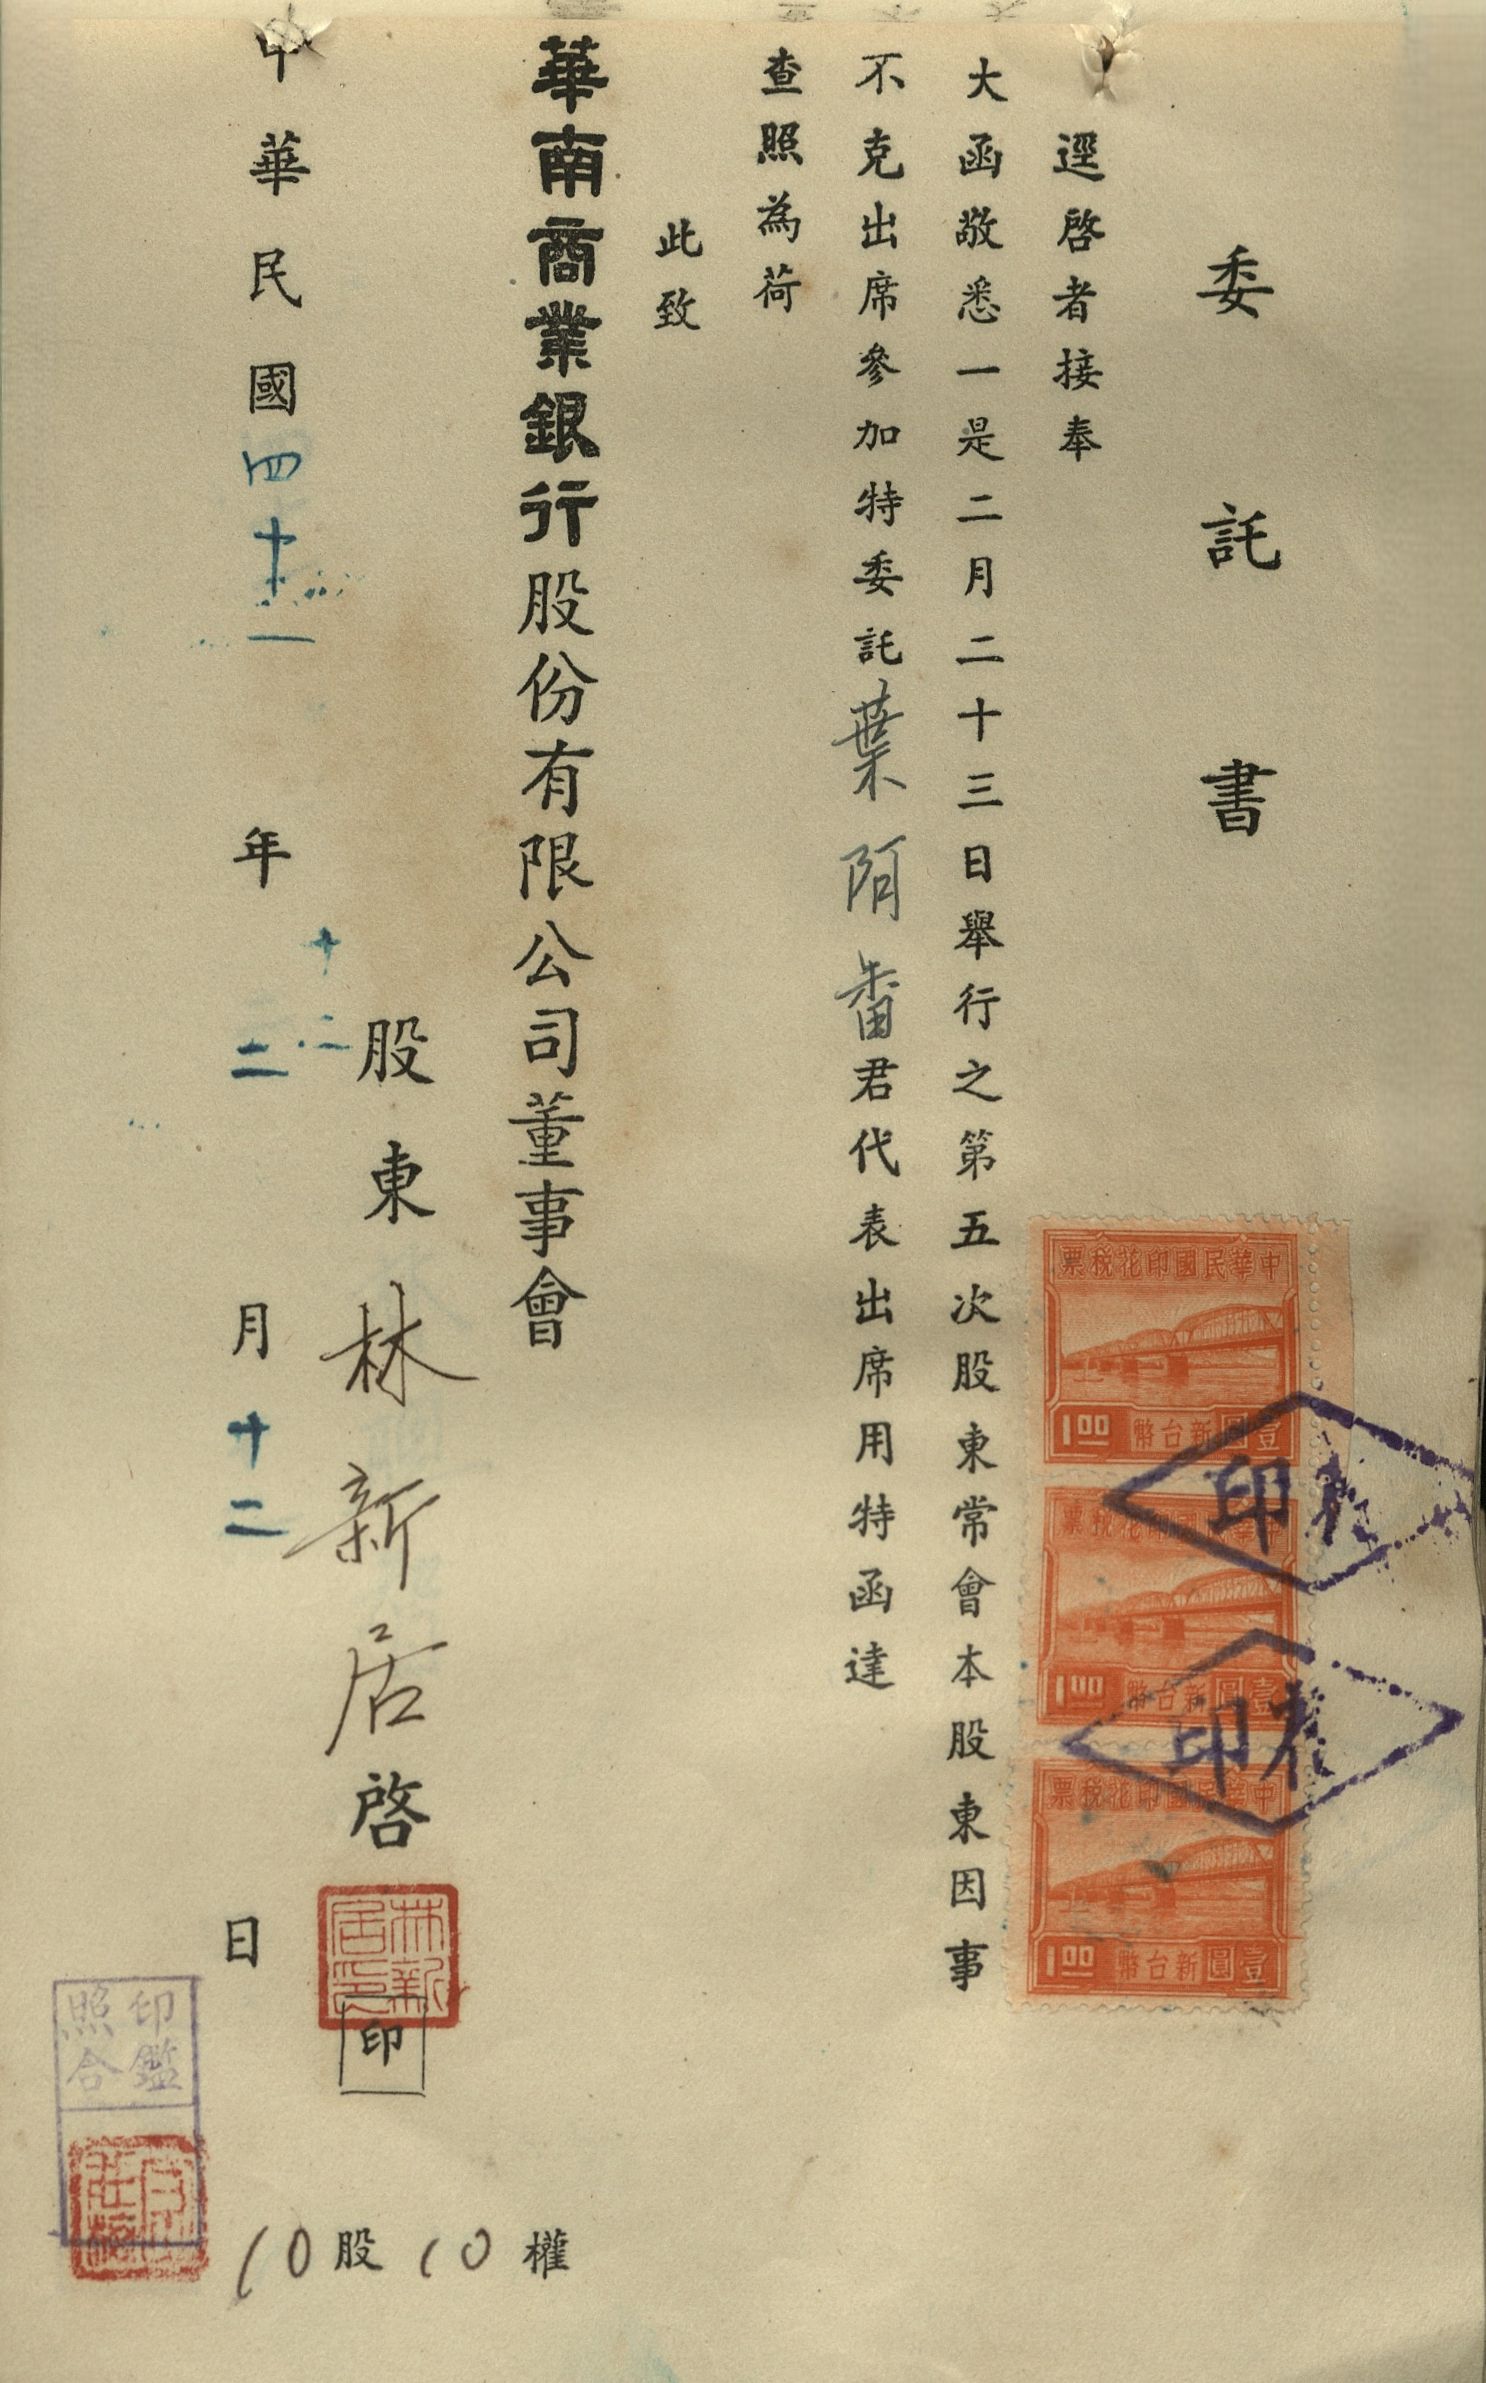 委託書
逕啓者接奉
大函敬悉一是二月二十三日舉行之第五次股東常會本股東因事
不克出席參加特委託葉阿番君代表出席用特函達
查照為荷
此致
華南商業銀行股份有限公司董事會
股東林新居啓
印
中華民國四十一年二月十二日
十二
10股10權
中華民國印花稅票
壹圓新台幣
1.00
中華民國印花稅票
壹圓新台幣
1.00
中華民國印花稅票
壹圓新台幣
1.00
印
印
林新居印
印鑑
照合